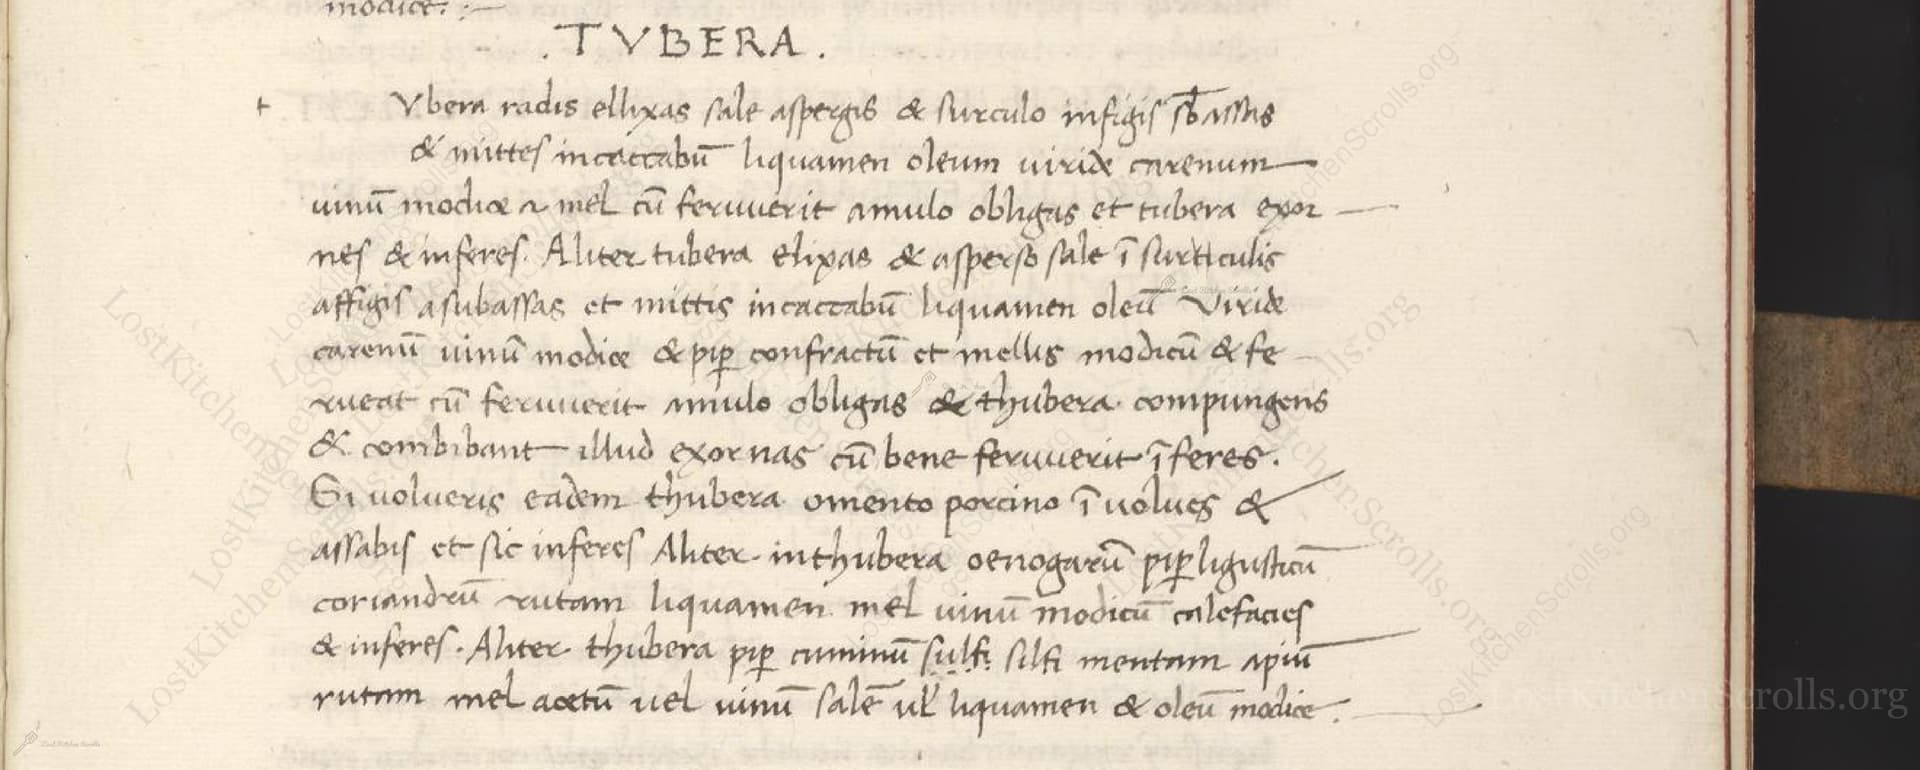 modice:
. TVBERA .
Vbera radis ellixas sale aspergis & surculo infigis sb̄assas
& mittes incaccabū liquamen oleum viride carenum
uinū modice & mel cū feruuerit amulo obligas et tubera exor
nes & inferes. Aliter tubera elixas & asperso sale ī surticulis
affigis asubassas et mittis incaccabū liquamen oleū viride
carenū uinū modice & pip confractū et mellis modicū & fe
rueat cū feruuerit amulo obligas & thubera compungens
& combibant illud exornas cū bene feruuerit īferes.
Si volueris eadem thubera omento porcino īuolues &
assabis et sic inferes Aliter inthubera oenogarū pip ligusticū
coriandrū rutam liquamen mel uinū modicū calefacies
& inferes. Aliter thubera pip cuminū sulfi silfi mentam apiū
rutam mel acetū uel uinū salē ul̄ liquamen & oleū modice.
LostKitchenScrolls.org